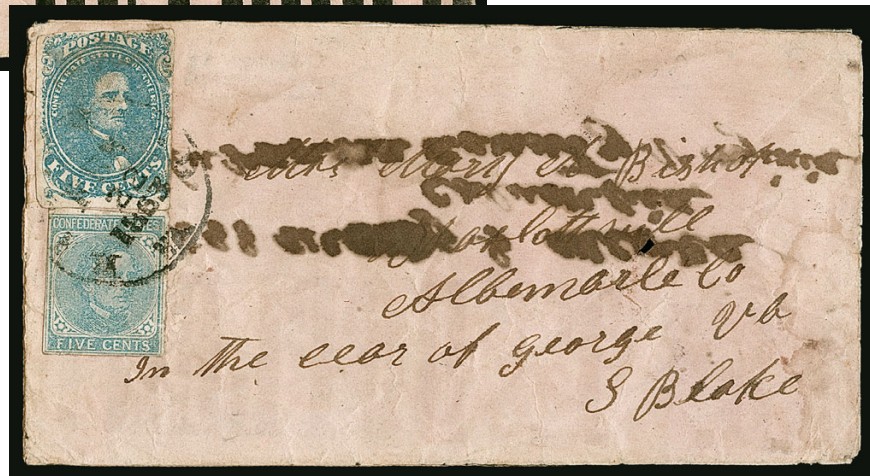 POSTAGE
CONFEDERATE STATES OF AMERICA
FIVE CENTS
CONFEDERATE STATES
FIVE CENTS
Mrs Mary A Bishop
Charlottsvill
Albemarle Co
Va
In the cear of george
S Blake